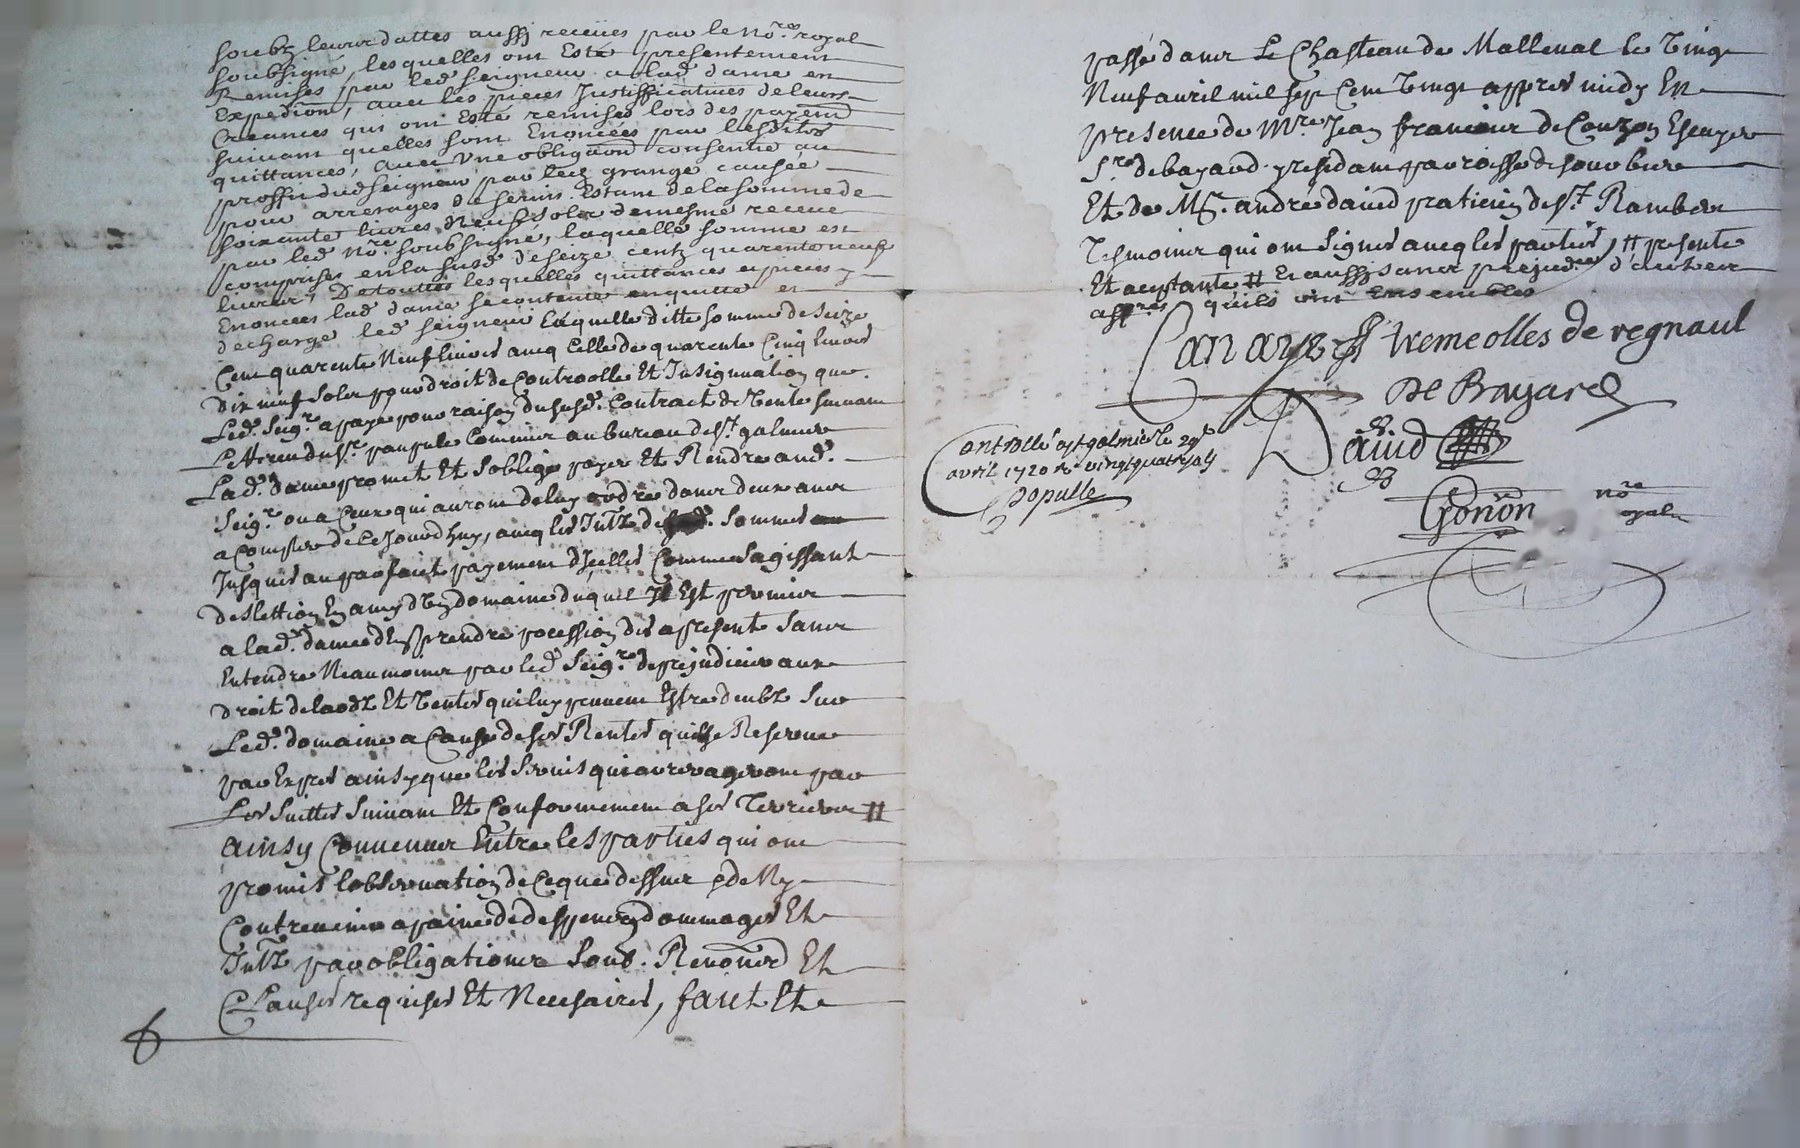 soubz leurs dattes aussy receües par le No.re royal
soubsigné, lesquelles ont Esté presentement
Remises par led. seigneur a lad. dame en
Expedion, auec les pieces Justifficatiues de leurs
Creances qui ont Esté remises lors des payemt
suiuant quelles sont Enoncées par lesdites
quittances, auec Vne obligaon consentie au
proffit dud seigneur par led. grange causée
pour arrerages de seruis Estant de la somme de
soixante liures Neufz solz de mesme receue
par led No.re soubsigné, laquelle somme est
comprise en la susd. de seize centz quarante neufz
liures, De touttes lesquelles quittances et pieces y
Enoncées lad dame se contente en quitte et
decharge led. seigneur laquelle ditte somme de seize
Cent quarente Neuf liures auec Celle de quarente Cinq liures
Dix neuf solz pour droit de Controolle Et Insignuation que
Led. Seig.r a payé pour raison du susd. Contract de Vente suiuant
Le Receu du Sr. panpule Commis au bureau de St. galmier
Lad. dame promet Et s'oblige payer Et Rendre aud.
Seig.r ou a Ceux qui auront de luy ordre dans deux ans
a Compter de Ce Jourd'huy, auec les Intz. de sommes
Jusques au parfaict payement d'Jcelles Comme s'agissant
de slettion En amy d'Vn domaine duquel Jl Est permis
a lad. dame d'En prendre pocession des a present sans
Entendre Neanmoins par led. Seig.r de prejudicier aux
droit de laodz Et Ventes qui luy peuuent Estre deubz sur
Led. domaine a Cause de ses Rentes qu'il se Reserue
par Expres ainsy que les seruis qui arrerageront par
Les suittes suiuant Et Conformement a ses Terriers #
ainsy Conuenus Entre les parties qui ont
promis l'obseruation de Ce que dessus & de N'y
Contreuenir a paine de despens dommages Et
Intz par obligations Soub. Renond Et
Clauses requises Et Necessaires, faict Et
passé dans Le Chasteau de Malleual le Vingt
Neuf auril mil sept Cent Vingt appres midy En
presence de Mre. Jean francois de Couzon Escuyer
Sr. de bayard y residant parroisse de sourbier
Et de Mr. andré dauid praticien de St. Rambert
Tesmoins qui ont signés aueq les parties, # presente
Et aceptante # Et aussy sans prejud.ce d'autres
affres qu'ils ont Ensembles
Canaye tremeolles de regnaul
De Bayard
Dauid
Controllé a st galmier le 29e
auril 1720 R vingt quatre sols
Populle
Gonon No.re
royal